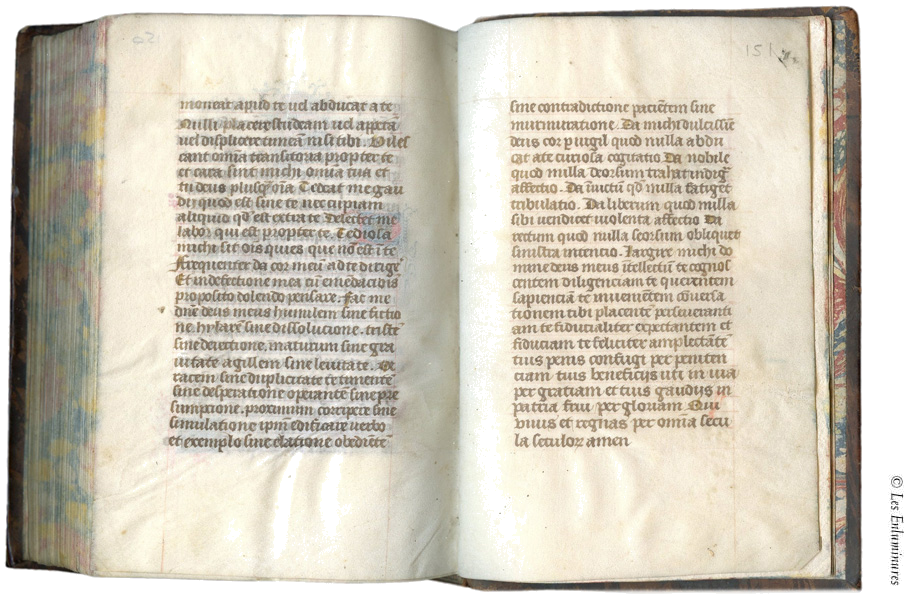 moueat apud te uel abducat a te
Nulli placere studeam uel appetā
uel displicere timeā nisi tibi. Viles
cant omīa transitoria propter te
et cara sint michi omīa tua et
tu deus plusq̄ oīa Tedeat me gau
dij quod est sine te nec cupiam
aliquid qd̄ est extra te Delectet me
labor qui est propter te. Tediosa
michi sit oīs quies que nō est ī te
Frequenter da cor meū ad te dirige
Et in defectione mea cū emēdacōis
proposito dolendo pensare. Fac me
dn̄e deus meus humilem sine fictio
ne. hylarē sine dissolucione. tristē
sine deiectione. maturum sine gra
uitate agillem sine leuitate. Ue
racem sine duplicitate te timentē
sine desperatione operantē sine pre
sumpcione. proximum corripere sine
simulatione ipm̄ edificare uerbo
et exemplo sine elatione obedientē
151
sine contradictione pacientem sine
murmuratione. Da michi dulcissīe
deus cor puigil quod nulla abdu
cat a te curiosa cogitatio Da nobile
quod nulla deorsum trahat indiḡ
affectio. Da īuictū qd̄ nulla fatiget
tribulatio. Da liberum quod nulla
sibi vendicet uiolenta affectio Da
rectum quod nulla seorsum obliquet
sinistra intencio. Largire michi do
mine deus meus ītellectū te cognos
centem diligenciam te querentem
sapienciā te inuenientem cōuersa
tionem tibi placentē perseueranti
am te fiducialiter expectantem et
fiduciam te feliciter amplectātē
tuis penis configi per peniten
ciam tuis beneficijs uti in uia
per gratiam et tuis gaudijs in
patria frui per gloriam Qui
viuis et regnas per omīa secu
la seculoꝝ amen
© Les Enluminures